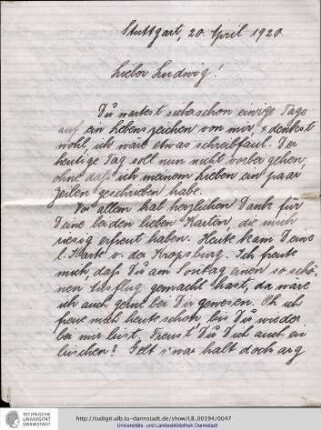 Stuttgart, 20. April 1920.
Lieber Ludwig!
Du wartest sicher schon einige Tage
auf ein Lebenszeichen von mir, & denkst
wohl, ich wäre etwas schreibfaul. Der
heutige Tag soll nun nicht vorbei gehen,
ohne daß ich meinem Lieben ein paar
Zeilen geschrieben habe.
Vor allem hab herzlichen Dank für
Deine beiden lieben Karten, die mich
riesig erfreut haben. Heute kam Deine
l. Karte v. der Kropsburg. Ich freute
mich, daß Du am Sonntag einen so schö-
nen Ausflug gemacht hast, da wäre
ich auch gerne bei Dir gewesen. Oh ich
freue mich heute schon, bis Du wieder
bei mir bist. Freust Du Dich auch ein
bisschen? Gelt s'war halt doch arg
TECHNISCHE
UNIVERSITÄT
DARMSTADT
http://tudigit.ulb.tu-darmstadt.de/show/LB_00194/0047
Universitäts- und Landesbibliothek Darmstadt